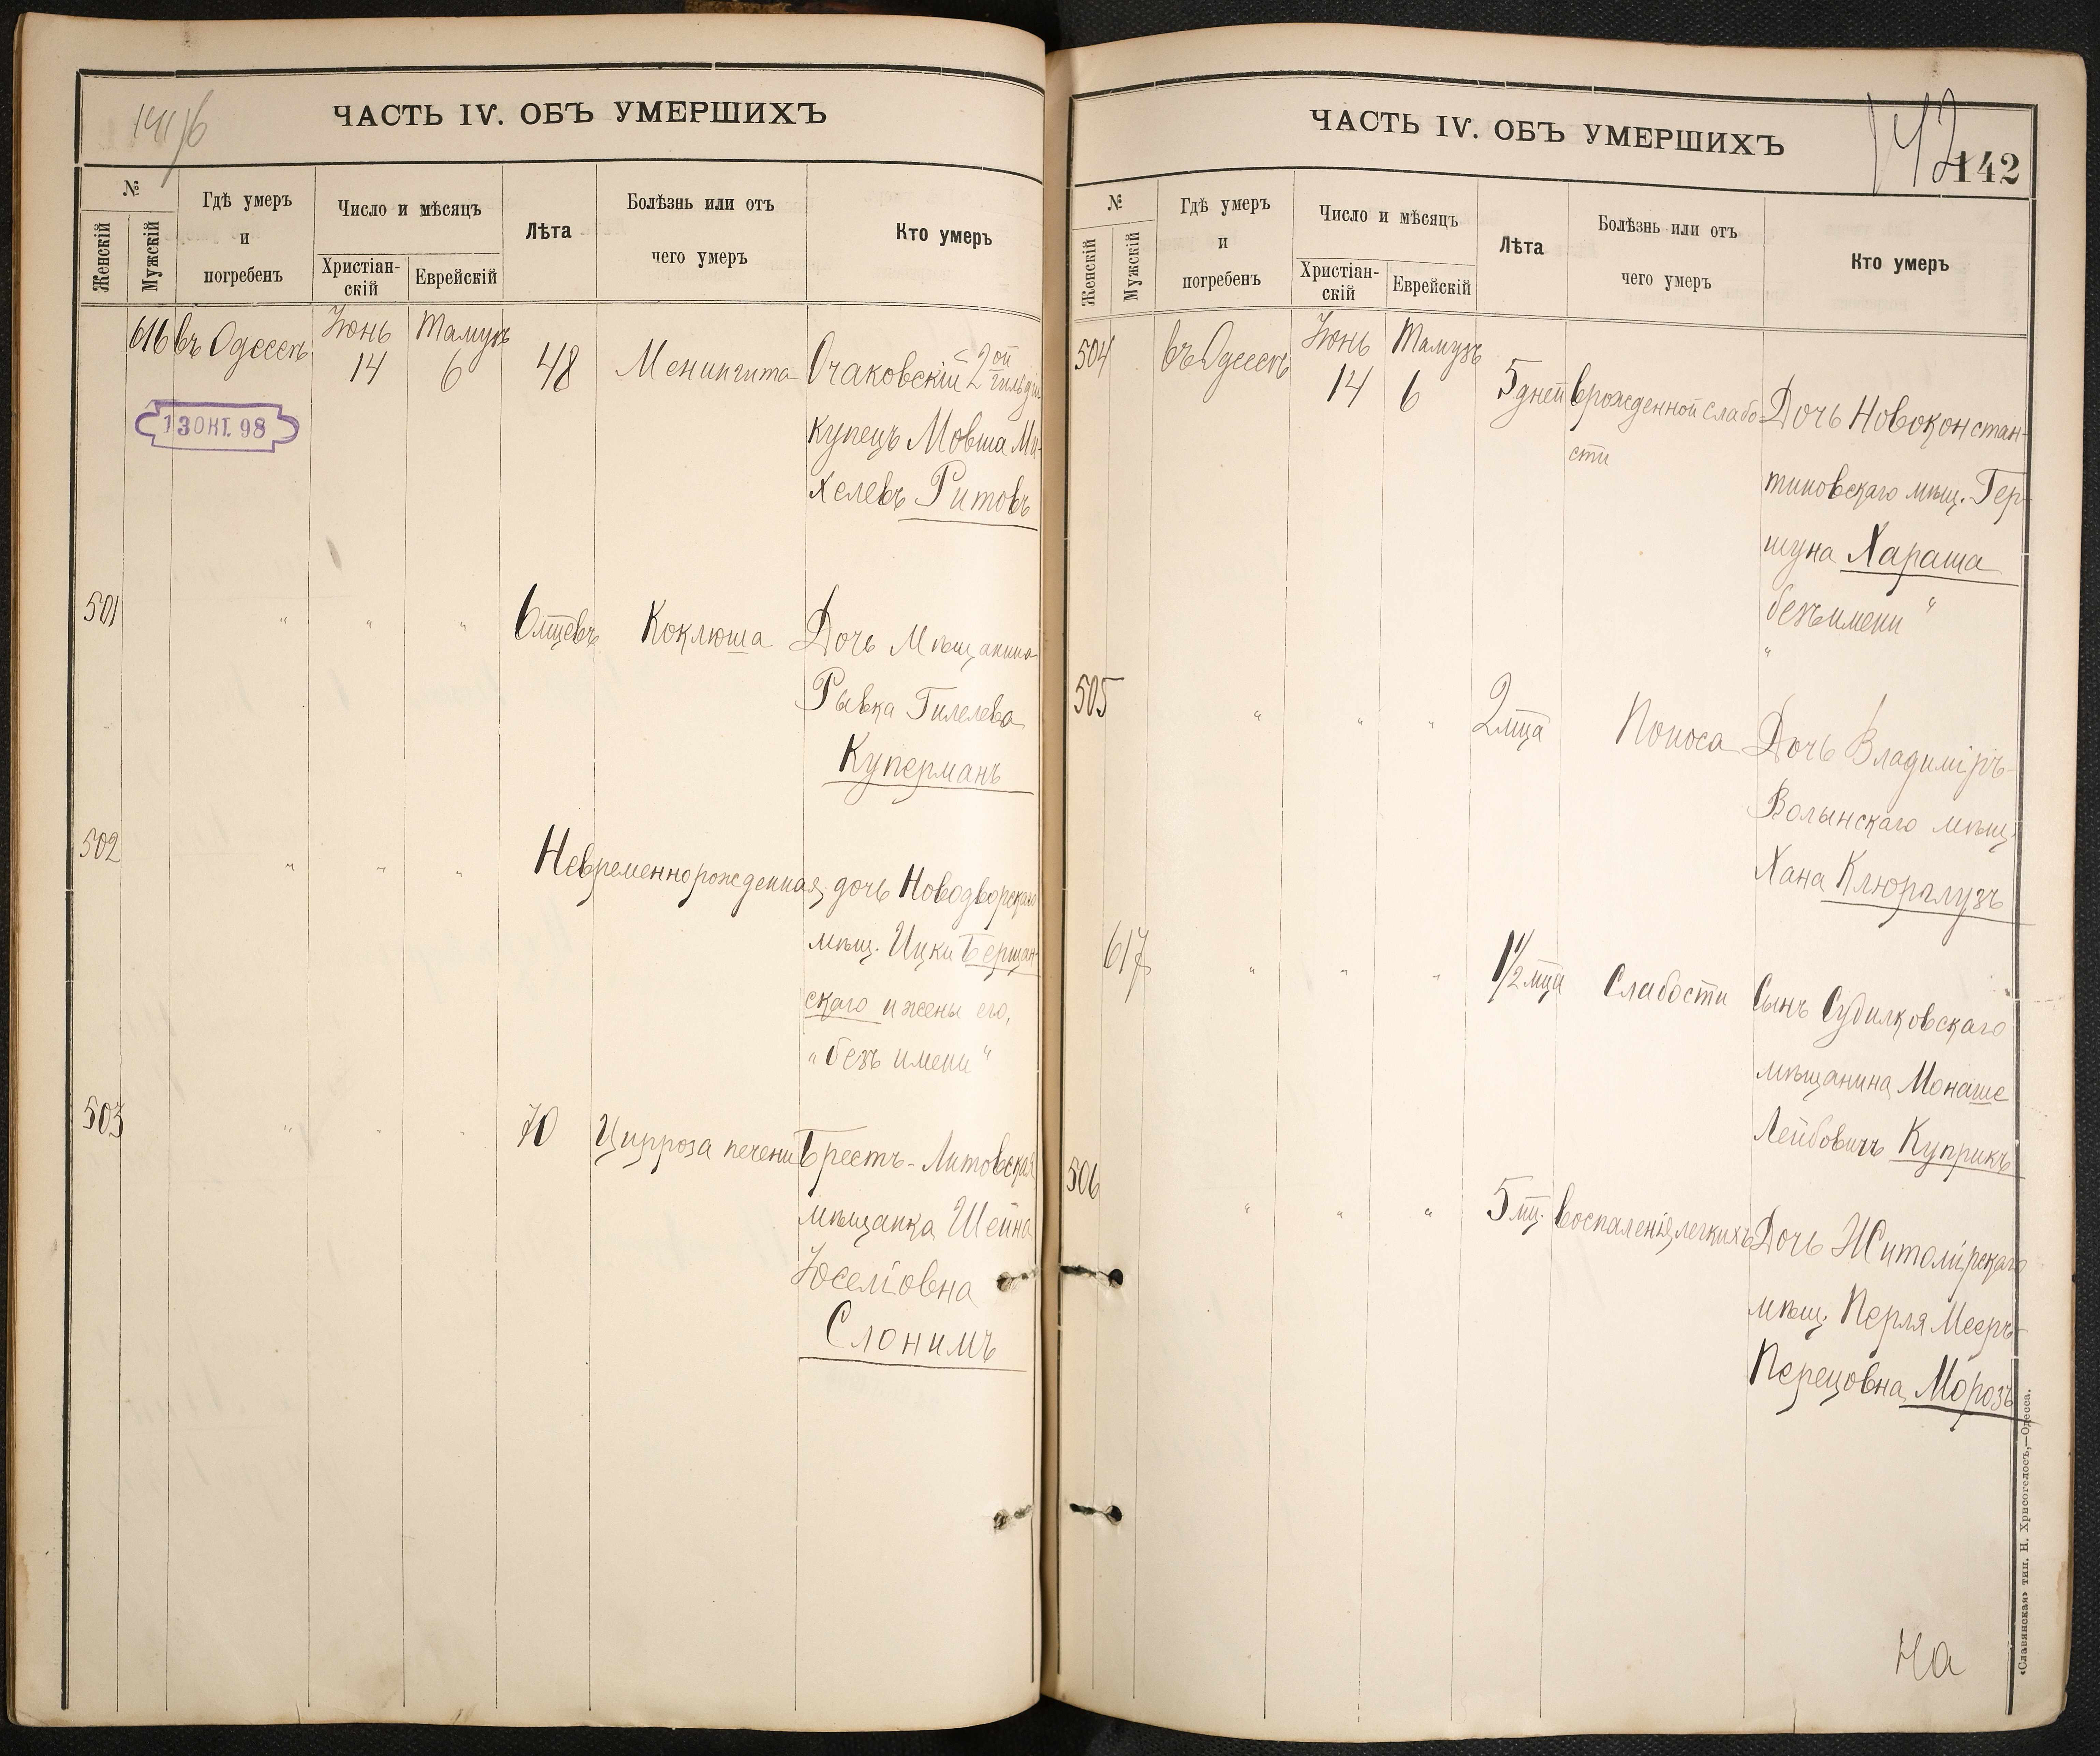 141/б
ЧАСТЬ IV. ОБЪ УМЕРШИХЪ
№
Женскій
Мужскій
Гдѣ умеръ
и
погребенъ
Число и мѣсяцъ
Христіан-
скій
Еврейскій
Лѣта
Болѣзнь или отъ
чего умеръ
Кто умеръ
616 въ Одессѣ Іюнь 14 Тамузъ 6 48 Менингита Очаковскій 2ой гильдіи
купецъ Мовша Ми-
хелевъ Ритовъ
13 ОКТ. 98
501 " " " 6 мцевъ Коклюша Дочь Мѣщанина
Рывка Гилелева
Куперманъ
502 " " " Невременнорожденная дочь Новодворскаго
мѣщ. Ицки Бершан-
скаго и жены его,
"безъ имени"
503 " " " 70 Цирроза печени Брестъ-Литовская
мѣщанка Шейна
Юселіовна
Слонимъ
142
142
ЧАСТЬ IV. ОБЪ УМЕРШИХЪ
№
Женскій
Мужскій
Гдѣ умеръ
и
погребенъ
Число и мѣсяцъ
Христіан-
скій
Еврейскій
Лѣта
Болѣзнь или отъ
чего умеръ
Кто умеръ
504 въ Одессѣ Іюнь 14 Тамузъ 6 5 дней врожденной слабо- Дочь Новоконстан-
сти
тиновскаго мѣщ. Гер-
шуна Хараша
"безъ имени"
505 " " " 2 мца Поноса Дочь Владиміръ-
Волынскаго мѣщ.
Хана
617 " " " 1 1/2 мца Слабости Сынъ Судилковскаго
мѣщанина Монаше
Лейбовичъ Куприкъ
506 " " " 5 мц. воспаленія легкихъ Дочь Житомірскаго
мѣщ. Перля Мееръ-
Перецовна Морозъ
На
«Славянская» тип. Н. Хрисогелосъ,—Одесса.